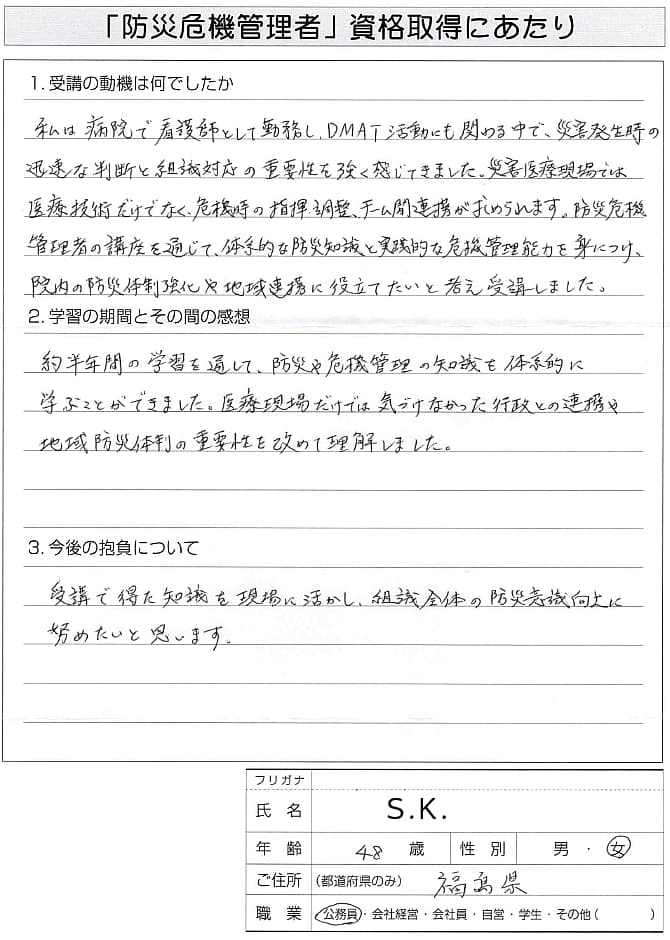 「防災危機管理者」資格取得にあたり
1. 受講の動機は何でしたか
私は病院で看護師として勤務し、DMAT活動にも関わる中で、災害発生時の
迅速な判断と組織対応の重要性を強く感じてきました。災害医療現場では
医療技術だけでなく、危機時の指揮、調整、チーム間連携が求められます。防災危機
管理者の講座を通じて、体系的な防災知識と実践的な危機管理能力を身につけ、
院内の防災体制強化や地域連携に役立てたいと考え受講しました。
2. 学習の期間とその間の感想
約半年間の学習を通して、防災や危機管理の知識を体系的に
学ぶことができました。医療現場だけでは気づけなかった行政との連携や
地域防災体制の重要性を改めて理解しました。
3. 今後の抱負について
受講で得た知識を現場に活かし、組織全体の防災意識向上に
努めたいと思います。
フリガナ
氏 名 S.K.
年 齢 48 歳 性 別 男 ・ 女
ご住所 (都道府県のみ) 福島県
職 業 公務員・会社経営・会社員・自営・学生・その他( )